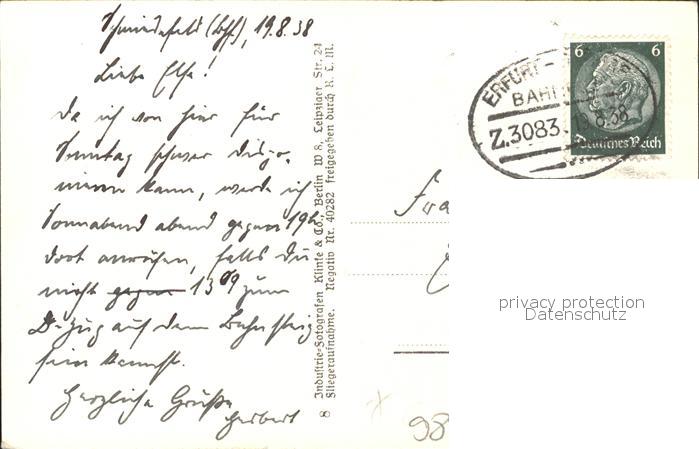 Schmiedefeld (Bhf), 19.8.38
Liebe Else!
Da ich von hier für
Sonntag schwer
kann, werde ich
Sonnabend abend gegen 19h
dort anrufen, falls Du
nicht gegen 13 09 zum
D-Zug auf dem Bahnsteig
sein kannst.
Herzliche Grüße
Herbert
8 Industrie-Fotografen Klinke & Co., Berlin W 8, Leipziger Str. 24
Fliegeraufnahme. Negativ Nr. 40282 freigegeben durch R. L. M.
ERFURT-
BAHN
Z.3083
8.38
6 6
Deutsches Reich
98
privacy protection
Datenschutz